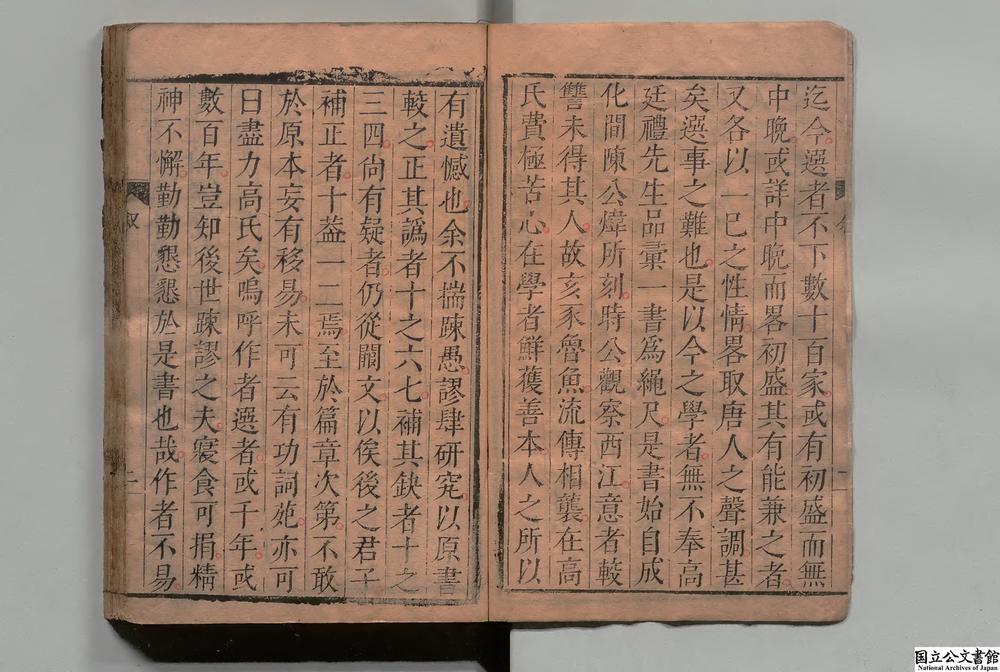 迄今選者不下數十百家或有初盛而無
中晚或詳中晚而畧初盛其有能兼之者
又各以一已之性情畧取唐人之聲調甚
矣選事之難也是以今之學者無不奉高
廷禮先生品彙一書為繩尺是書始自成
化間陳公煒所刻時公觀察西江意者較
讐未得其人故亥豕魯魚流傳相襲在高
氏費極苦心在學者鮮獲善本人之所以
有遺憾也余不揣踈愚謬肆研究以原書
較之正其譌者十之六七補其缺者十之
三四尙有疑者仍從闕文以俟後之君子
補正者十葢一二焉至於篇章次第不敢
於原本妄有移易未可云有功詞苑亦可
曰盡力高氏矣嗚呼作者選者或千年或
數百年豈知後世踈謬之夫寢食可捐精
神不懈勤勤懇懇於是書也哉作者不易
叙
二
国立公文書館
National Archives of Japan